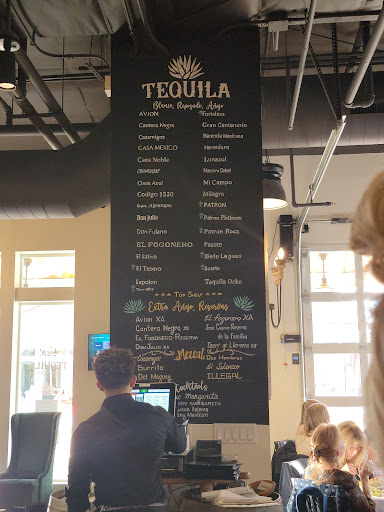 TEQUILA
Blanco, Reposado, Añejo
AVION
Cantera Negra
Casamigos
CASA MEXICO
Casa Noble
Clase Azul
Codigo 1530
Don Julio
Don Fulano
EL FOGONERO
El Sativo
El Tesoro
Espolon
Fortaleza
Gran Centenario
Herencia Mexicana
Herradura
Lunazul
Maestro Dobel
Mi Campo
Milagro
PATRON
Patron Platinum
Patron Roca
Pasote
Siete Leguas
Suerte
Tequila Ocho
Top Shelf
Extra Añejo, Reservas
Avion XA
Cantera Negra XA
El Fogonero Reserva
Don Julio
El Fogonero XA
Jose Cuervo Reserva
de la Familia
Mezcal
Casamigos
Burrito
Del Maguey
Dos Hombres
El Silencio
ILLEGAL
Cocktails
Margarita
MARGARITA
Paloma
Mexican